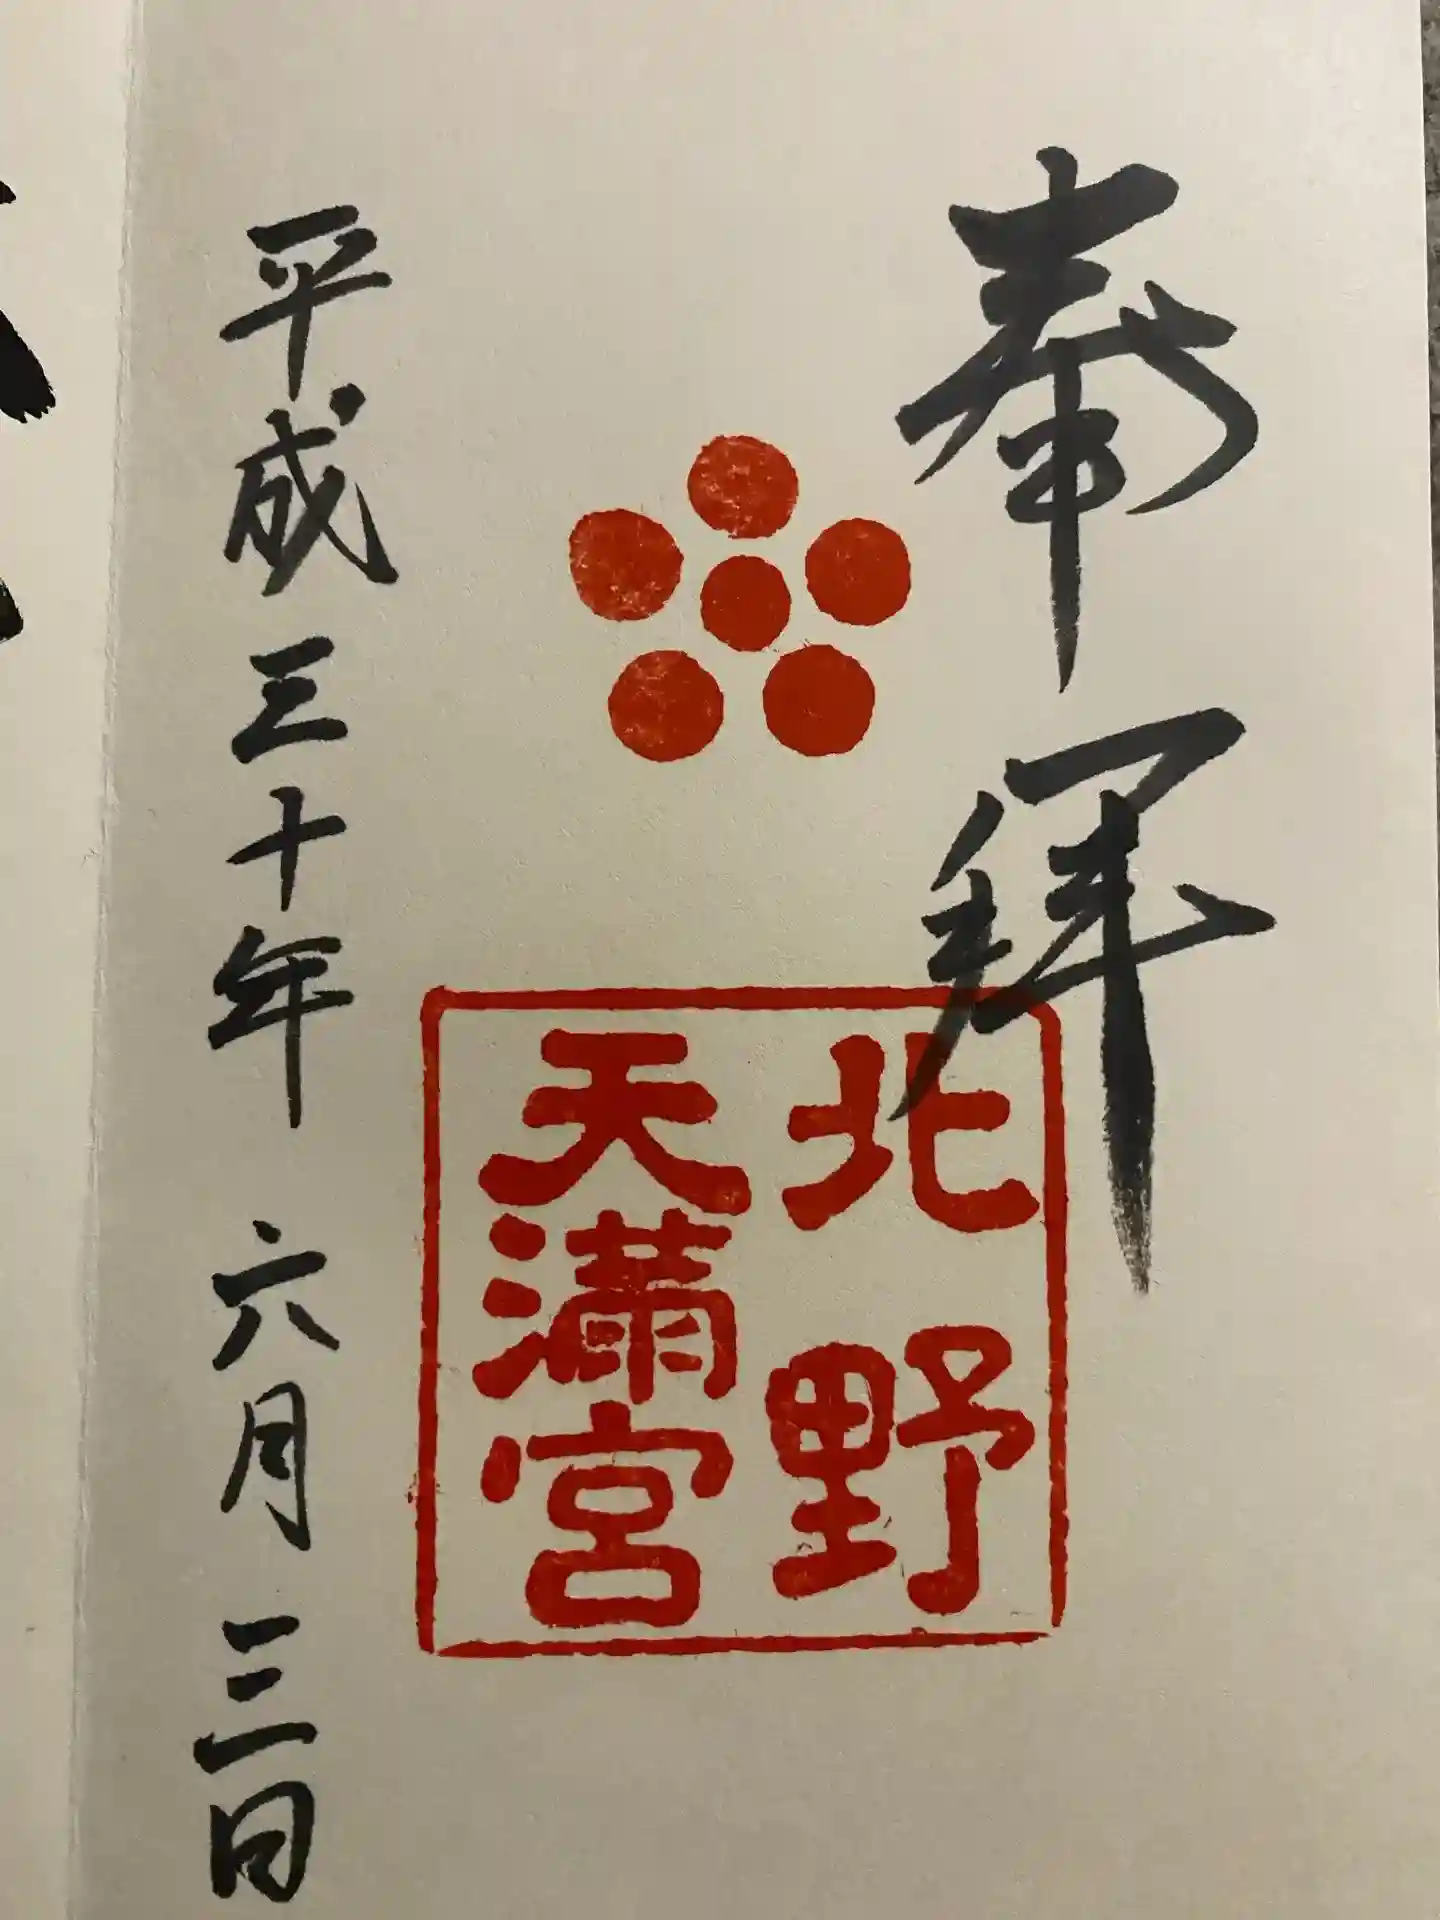 奉拜
北野
天満宮
平成三十年 六月三日